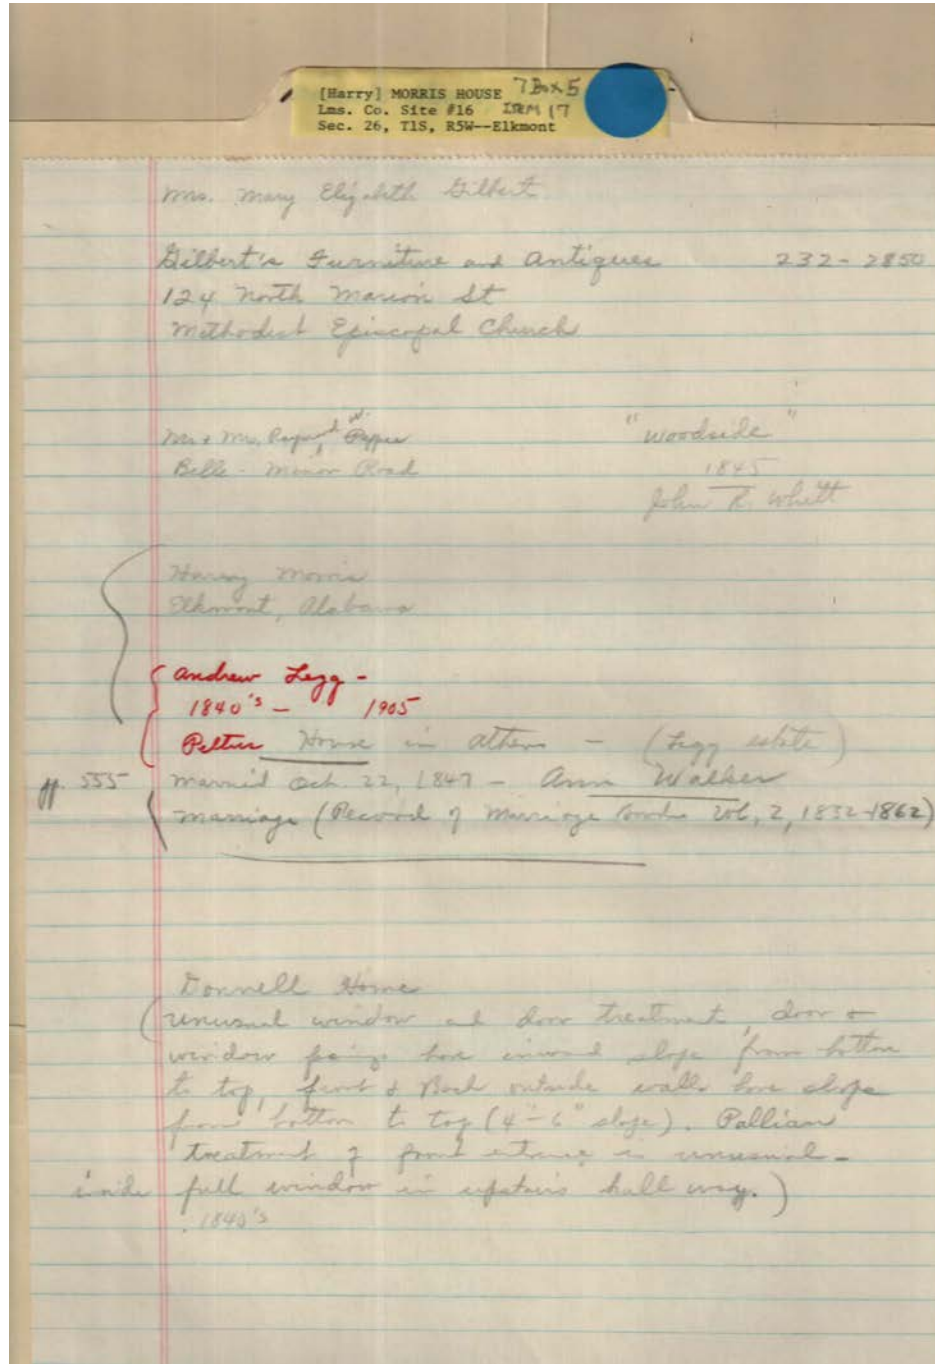 [Harry] MORRIS HOUSE 7 Box 5
Lms. Co. Site #16 ITEM 17
Sec. 26, T1S, R5W--Elkmont
Mrs. Mary Elizabeth Gilbert
Gilbert's Furniture and Antiques 232-2850
124 North Marion St
Methodist Episcopal Church
Mr & Mrs. W. "Woodside"
Belle-Minor Road 1845
John R. Whitt
Harry Morris
Elkmont, Alabama
Andrew Legg -
1840's - 1905
House in Athens - (Legg estate)
pp. 555 Married Oct. 22, 1847 - Ann Walker
Marriage (Record of Marriage Vol, 2, 1832-1862)
Donnell Home
(unusual window and door treatment, door &
window facings have inward slope from bottom
to top, front & Back outside walls have slope
from bottom to top (4"-6" slope). Pallian
treatment of front entrance is unusual -
inside full window in upstairs hall way.)
1840's